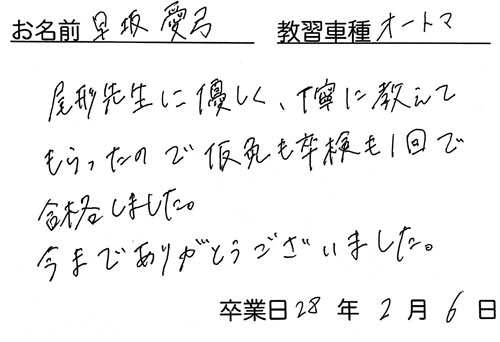 お名前 早坂 愛弓 教習車種 オートマ
尾形先生に優しく、丁寧に教えて
もらったので仮免も卒検も1回で
合格しました。
今までありがとうございました。
卒業日 28 年 2 月 6 日